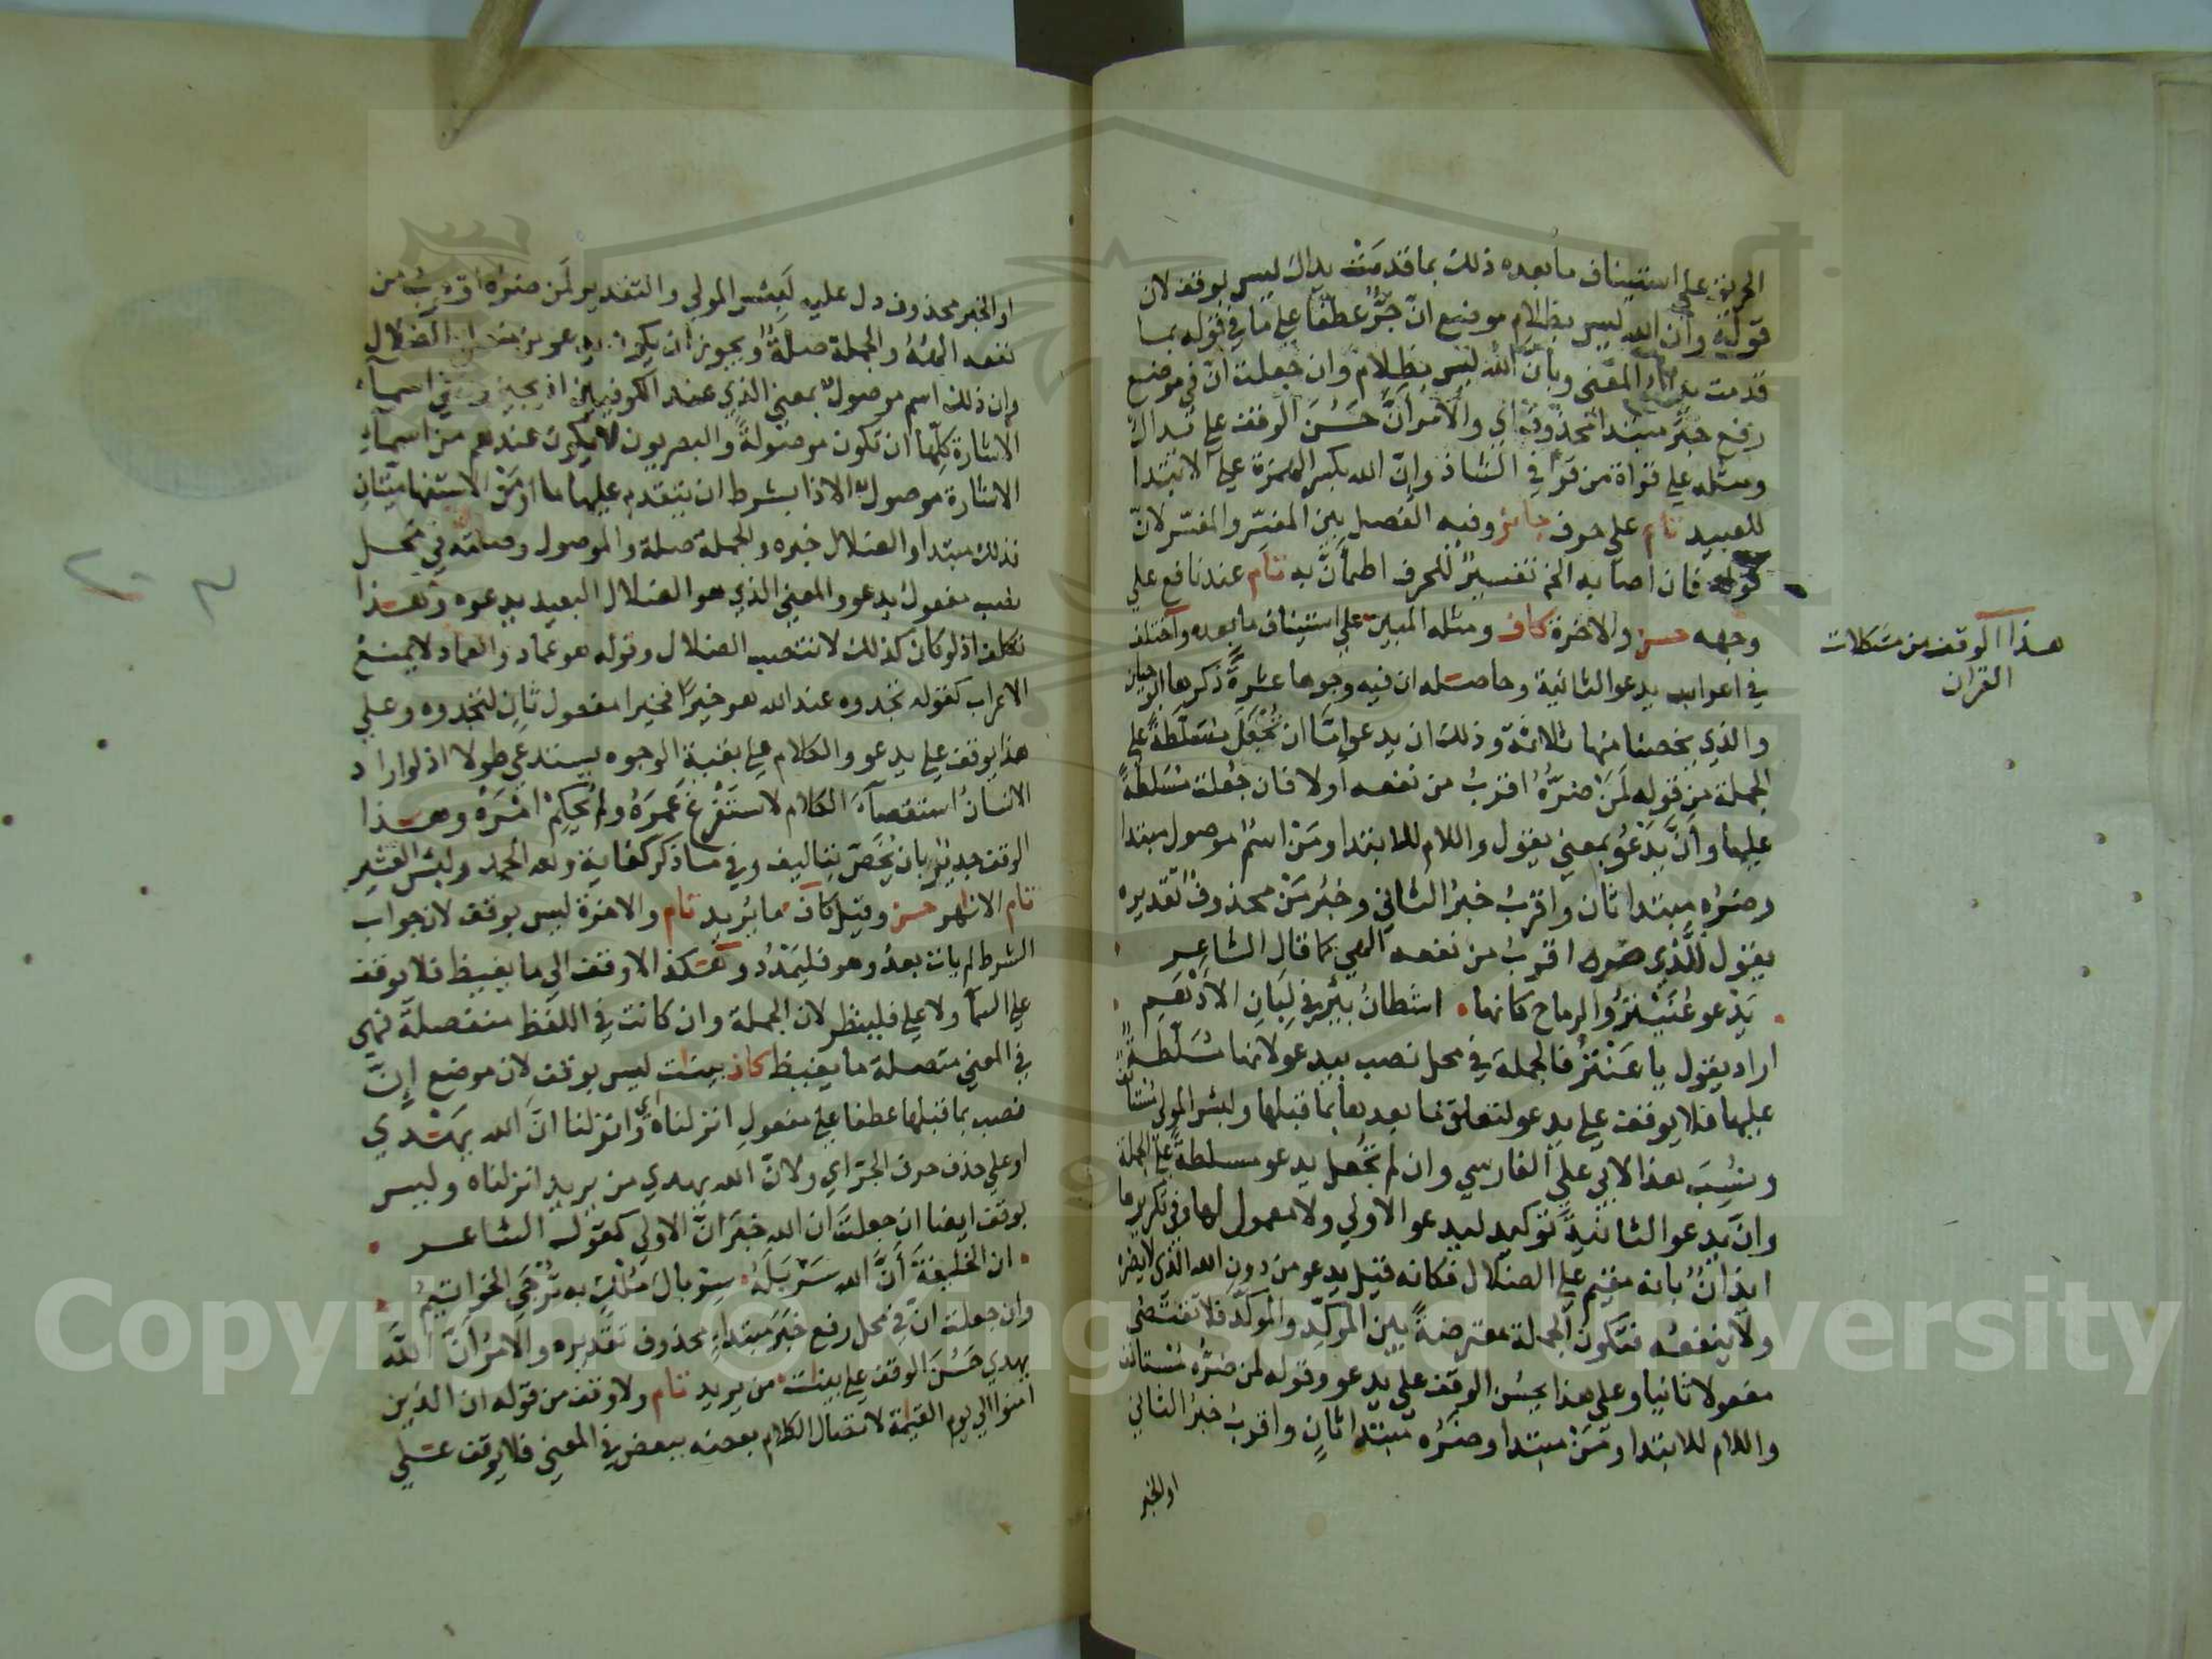 الحريق على استيناف ما بعده ذلك بما قدمت يداك ليس بوقف لان
قوله وأن الله ليس بظلام موضع انّ جرّ عطفا على ما في قوله بما
قدمت يداك المعنى وبأنّ الله ليس بظلام وان جعلت انّ في موضع
رفع خبر مبتدا محذوف اي والأمر أنّ حَسُنَ الوقف على يداك
ومثله على قراة من قرا في الشاذ وإنّ الله بكسر الهمزة على الابتدا
للعبيد تام على حرف جائز وفيه الفصل بين المفسّر والمفسّر لانّ
قوله فان اصابه الخ تفسيرٌ للحرف اطمأنّ به تام عند نافع على
وجهه حسن والاخرة كاف ومثله المبين على استيناف ما بعده واختلف
في اعراب يدعو الثانية وحاصله ان فيه وجوها عشرةً ذكرها ابو حيان
والذي يخصنا منها ثلاثة وذلك ان يدعو امّا ان تُجْعَلَ مسلّطةً على
الجملة من قوله لَمَنْ ضرُّهُ اقربُ من نفعه أولا فان جُعلت مُسَلطةً
عليها وأنّ يَدْعُو بمعنى يقول واللام للابتدا ومَنْ اسمٌ موصول مبتدا
وضرّه مبتدا ثان واقربُ خبرُ الثاني وخبرُ مَنْ محذوفٌ تقديره
يقول للَّذي ضره اقربُ من نفعه الهي كما قال الشاعر
يَدْعو عُنَيْتَرُ والرماح كانها • اشطانُ بئرٍ في لَبَانِ الأدْهَمِ
اراد يقول يا عَنْتَرُ فالجملة في محل نصب بيدعو لانها مُسَلّطةٌ
عليها فلا يوقف على يدعو لتعلق ما بعدها بما قبلها ولبئس المولى مستأنف
ونُسِبَ هذا لابي علي الفارسي وان لم تُجْعل يدعو مسلطةً على الجملة
وانّ يدعو الثانيةَ توكيد ليدعو الاولى ولا معمول لها وفي تكريرها
ايذانٌ بانه مقيم على الضلال فكانه قيل يدعو من دون الله الذي لا يضره
ولا ينفعه فتكون الجملة معترضةً بين المؤكِّد والمؤكَّد فلا تقتضي
مفعولا ثانيا وعلى هذا يحسُن الوقف على يدعو وقوله لمن ضرُّه مستأنف
واللام للابتدا ومَنْ مبتدا وضرّه مبتدا ثانٍ واقربُ خبر الثاني
او الخبر
هذا الوقف من مشكلات
القران
او الخبر محذوف دل عليه لَبِئس المولى والتقدير لَمن ضره اقربُ من
نفعه الههُ والجملة صلةٌ ويجوز ان يكون يدعو من الضلال
وان ذلك اسم موصولٌ بمعنى الذي عند الكوفيين اذ يجيزون في اسماء
الاشارة كلّها ان تكون موصولةً والبصريون لا يكون عندهم من اسماء
الاشارة موصول الا ذا بشرط ان يتقدم عليها ما او مَنْ الاستفهاميتان
فذلك مبتدا والضلال خبره والجملة صلة والموصول وصلته في محل
نصب مفعول يدعو والمعنى الذي هو الضلال البعيد يدعوه وهذا
تكلف اذ لو كان كذلك لانتصب الضلال وقوله هو عماد والعماد لا يمنع
الاعراب كقوله تجدوه عند الله هو خيرًا فخيرا مفعول ثانٍ لتجدوه وعلى
هذا يوقف على يدعو والكلام على بقية الوجوه يستدعى طولا اذ لو اراد
الانسانُ استقصاءَ الكلام لاستَفْرغَ عُمرَهُ ولم يُحكِمْ امْرَهْ وهذا
الوقف جديرٌ بان يُخَصّ بتاليف وفي ما ذكر كفاية ولله الحمد ولبئس العشير
تام الانهر حسن وقيل كاف ما يريد تام والاخرة ليس بوقف لان جواب
الشرط لم يات بعدُ وهو فليَمْدُدْ وهكذا الاوقف الى ما يغيظ فلا يوقف
على السمآ ولا على فلينظر لان الجملة وان كانت في اللفظ منفصلة فهي
في المعنى متصلة ما يغيظ كاف بينات ليس بوقف لان موضع إنّ
نصب بما قبلها عطفا على مفعول انزلناه اي وانزلنا انّ الله يهدي
او على حذف حرف الجرّ اي ولانّ الله يهدي من يريد انزلناه وليس
بوقف ايضا ان جعلت ان الله خبرَ انّ الاولى كقول الشاعر
• ان الخليفةَ أنّ الله سَرْبَلَهُ • سربالَ مُلْكٍ به تُرْجَى الخواتيمُ
وان جعلت انّ في محل رفع خبَرَ مبتداءٍ محذوف تقديره والامرُ انّ اللهَ
يهدي حَسُنَ الوقف على بينات من يريد تام ولا وقف من قوله ان الذين
امنوا الى يوم القيمة لاتصال الكلام بعضه ببعض في المعنى فلا يوقف على
Copyright © King Saud University